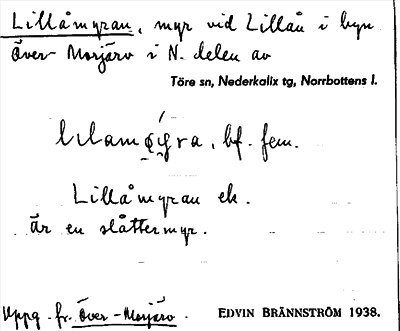 Lillåmyran, myr vid Lillån i byn
Över-Morjärv i N. delen av
Töre sn, Nederkalix tg, Norrbottens l.
bf. fem.
Lillåmyran ek.
är en slåttermyr.
Uppg. fr. Över-Morjärv.
EDVIN BRÄNNSTRÖM 1938.